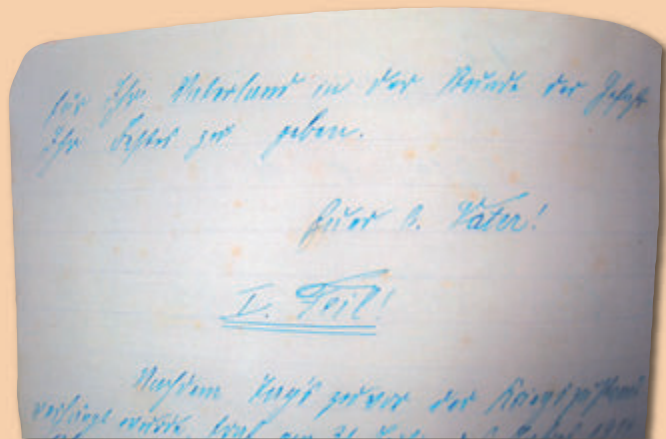 für Ihr Vaterland in der Stunde der Gefahr
Ihr Bestes zu geben.
Euer l. Vater!
I. Teil!
Nachdem tags zuvor der Kriegszustand
verhängt wurde, traf am 31.